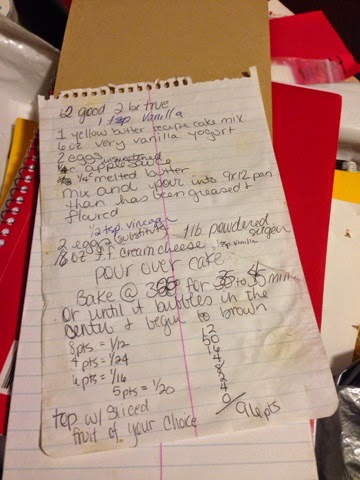 2 good 2 be true
1 tsp vanilla
1 yellow butter recipe cake mix
6 oz very vanilla yogurt
2 eggs unsweetened
applesauce
1/4 c melted butter
mix and pour into 9x12 pan
than has been greased &
floured
1/2 tsp vinegar
2 eggs (substitute) 1 lb. powdered
sugar
16 oz f.f. cream cheese 1 tsp vanilla
pour over cake
Bake @ for to min.
or until it bubbles in the
center & begun to brown
8pts = 1/12
4 pts = 1/24
6 pts = 1/16
5pts = 1/20
12
50
16
4
8
2
4
0
96pts
top w/ sliced
fruit of your choice